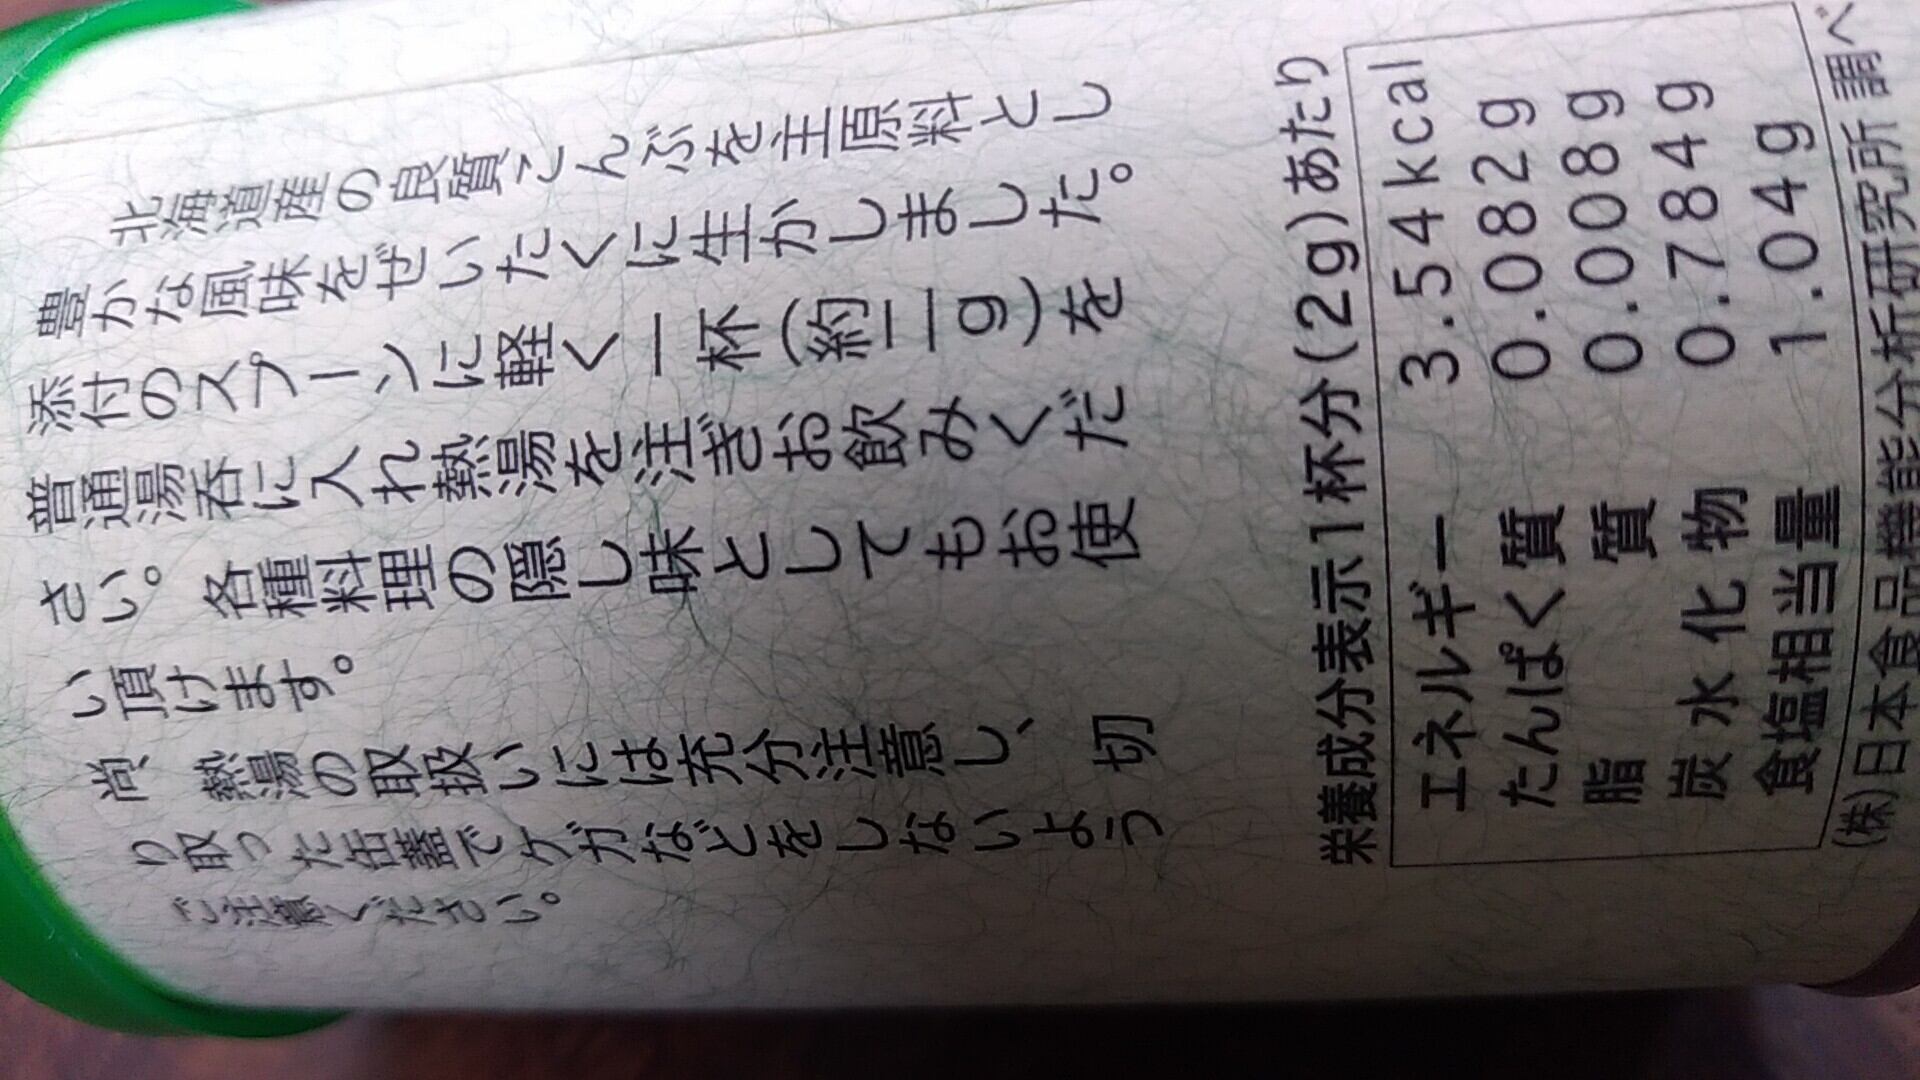 北海道産の良質こんぶを主原料とし
豊かな風味をぜいたくに生かしました。
添付のスプーンに軽く一杯(約二g)を
普通湯呑に入れ熱湯を注ぎお飲みくだ
さい。各種料理の隠し味としてもお使
い頂けます。
尚、熱湯の取扱いには充分注意し、切
り取った缶蓋でケガなどをしないよう
ご注意ください。
栄養成分表示1杯分(2g)あたり
エネルギー 3.54kcal
たんぱく質 0.082g
脂質 0.008g
炭水化物 0.784g
食塩相当量 1.04g
(株)日本食品機能分析研究所調べ